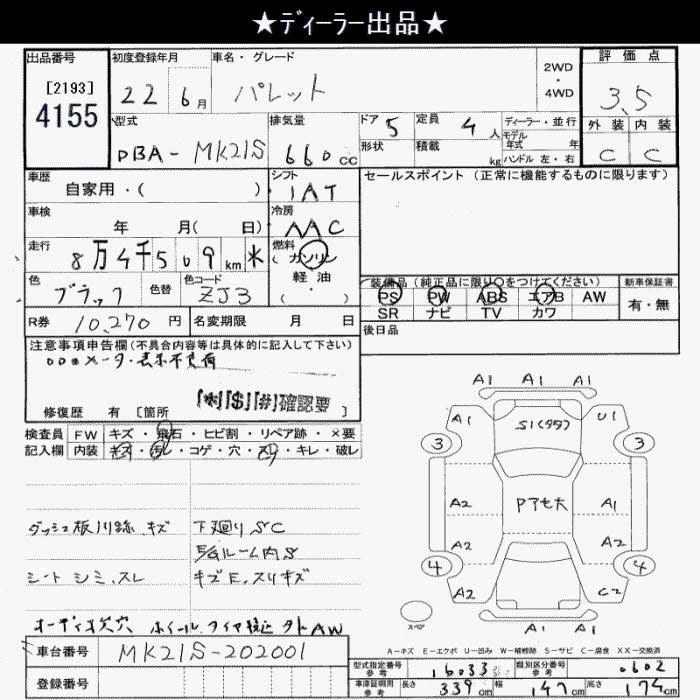 ★ディーラー出品★
出品番号
[2193]
4155
初度登録年月
22 6月
車名・グレード
パレット
2WD
・
4WD
評価点
3.5
外装 内装
C C
型式
DBA-MK21S
排気量
660cc
ドア 5
形状
定員 4人
積載 kg
ディーラー・並行
モデル
年式 年
ハンドル 左・右
車歴
自家用・( )
シフト
IAT
セールスポイント(正常に機能するものに限ります)
車検
年 月( 日)
冷房
AAC
走行
8万4千5 09km *
燃料
(ガソリン
軽油
( ・ )
色
ブラック
色替
色コード
ZJ3
装備品(純正品に限り〇をつけてください)
PS PW ABS エアB AW
SR ナビ TV カワ
新車保証書
有・無
R券 10,270円
名変期限 月 日
後日品
注意事項申告欄(不具合内容等は具体的に記入して下さい)
メーター表示不良有
修復歴 有 [箇所 ]
「*」「$」「#」確認要
検査員
記入欄
FW キズ・飛石・ヒビ割・リペア跡・×要
内装 キズ・汚レ・コゲ・穴・スレ・キレ・破レ
ダッシュ板 跡、キズ
下廻りSC
E/gルーム内S
シート シミ、スレ
キズE、スリキズ
オーディオ欠穴 ホイール、タイヤ 外AW
車台番号 MK21S-202001
登録番号
A1 A1 A1
A1 S1(99) U1
3 3
A2 PアセX A1
A2 A2
4 4
A2 C2
スペア
A1 A1
A-キズ E-エクボ U-凹み W-補修跡 S-サビ C-腐食 XX-交換済
型式指定番号
参考
16033
類別区分番号
参考
0602
車庫証明用
参考
長さ 339cm 幅 147cm 高さ 174cm